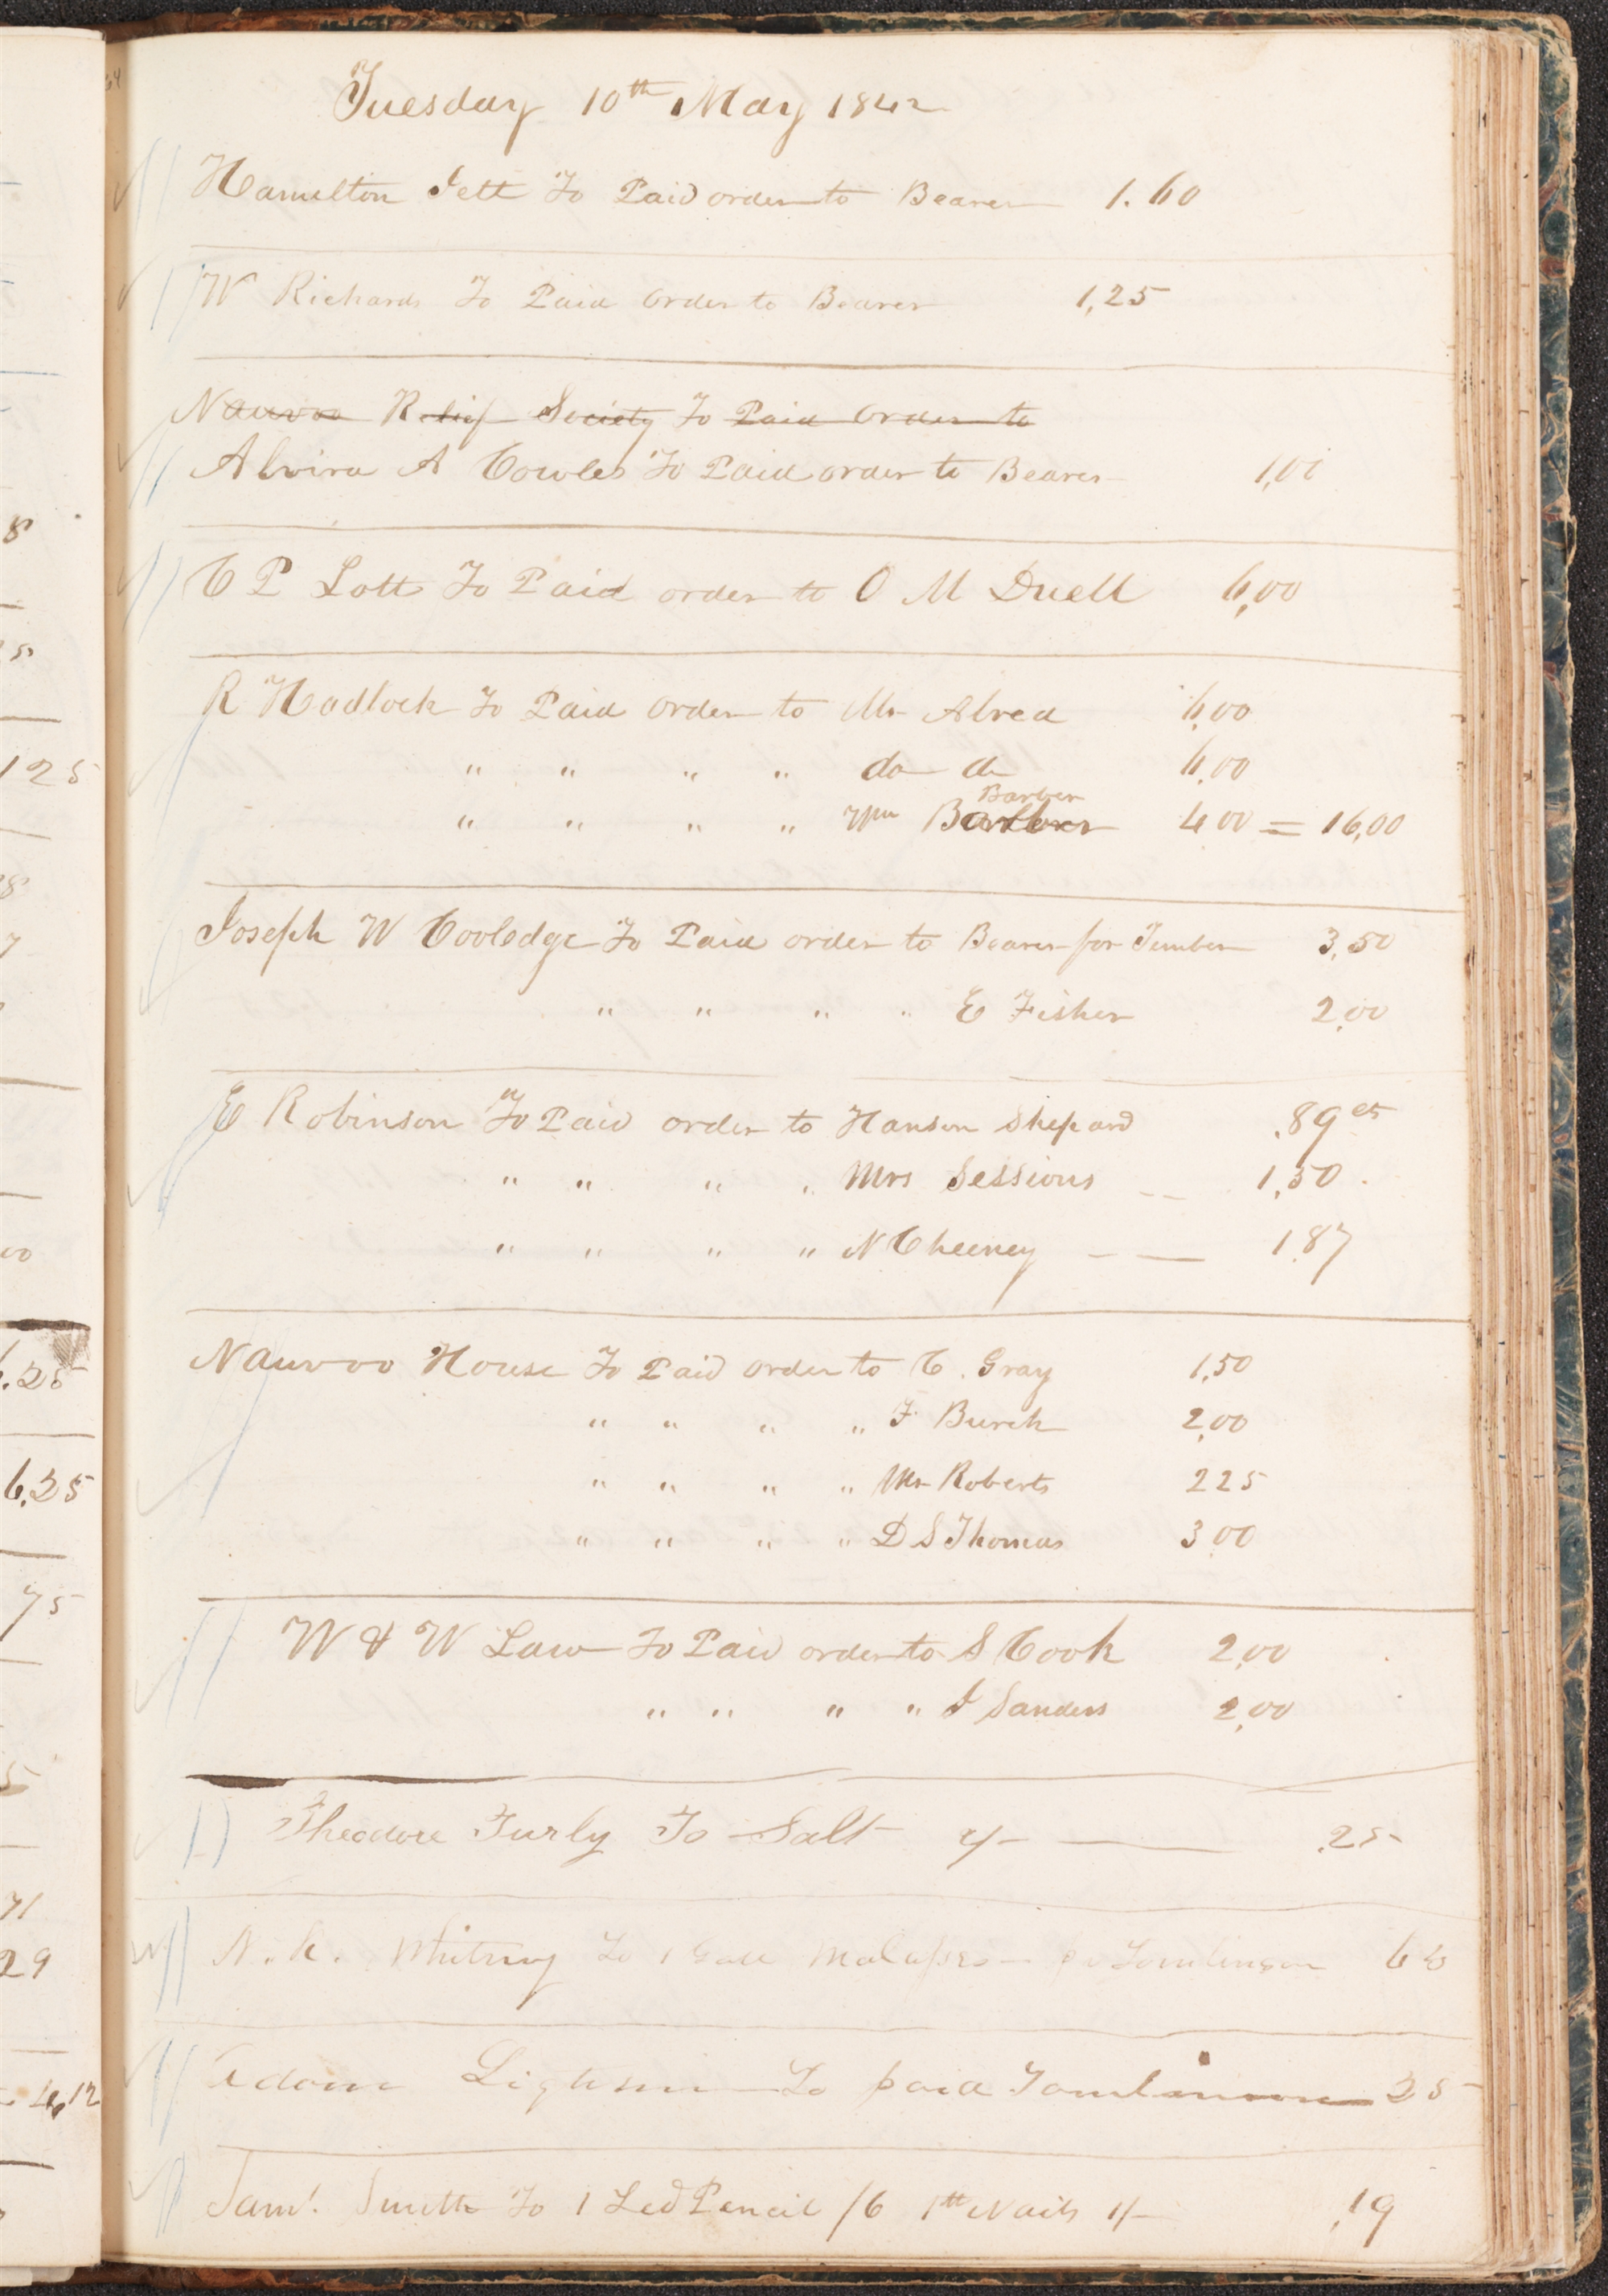 Tuesday 10th May 1842
Hamilton Jett To Paid order to Bearer 1.60
W Richards To Paid Order to Bearer 1,25
Nauvoo Relief Society To Paid Order to
Alvira A Cowles To Paid order to Bearer 1,00
C P Lott To Paid order to O M Duell 6,00
R Hadlock To Paid Order to Mr Alred 6,00
" " " " do do 6,00
Barber
" " " " Wm 4 00 = 16,00
Joseph W Cooledge To Paid order to Bearer for Timber 3,50
" " " " E Fisher 2,00
E Robinson To Paid order to Hanson Shepard .89 cts
" " " " Mrs Sessions — 1,50
" " " " N Cheeney — — 1.87
Nauvoo House To Paid order to C. Gray 1,50
" " " " F Burch 2,00
" " " " Mr Roberts 2 25
" " " " D S Thomas 3 00
W & W Law To Paid order to S Cook 2,00
" " " " J Sanders 2,00
Theodore Turly To Salt — .25
N. K. Whitney To 1 Gall Molasses — pr Tomlinson 63
Adam Lightner To paid Tomlinson 25
Saml. Smith To 1 Led Pencil /6 1 lb Nails 1/— .19
8
125
8
7
00
6.25
75
71
29
4,12